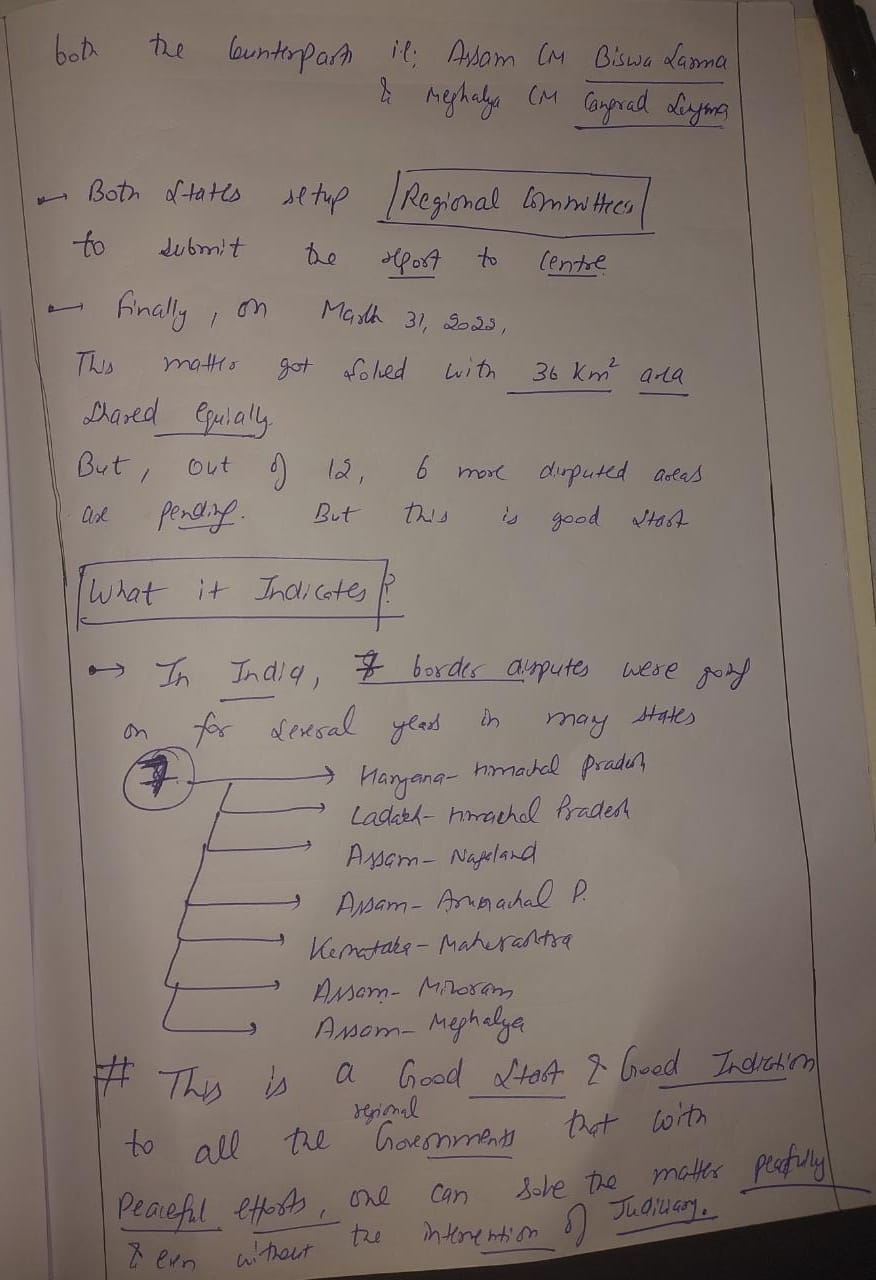 both the Counterparts ie; Assam CM Biswa Sarma
& Meghalya CM Congrad Sangma
→ Both States setup Regional Committees
to submit the report to Centre
→ Finally, on March 31, 2022,
This matter got solved with 36 Km² area
Shared Equially.
But, out of 12, 6 more disputed areas
are pending. But this is good start
What it Indicates?
→ In India, 7 border disputes were going
on for several years in may states
7 → Haryana- Himachal Pradesh
→ Ladakh- Himachal Pradesh
→ Assam- Nagaland
→ Assam- Arunachal P.
→ Karnataka- Maharashtra
→ Assam- Mizoram
→ Assam- Meghalya
# This is a Good Start & Good Indiction
to all the regional Governments that with
Peaceful efforts, one can solve the matter peacfully
& even without the intervention of Judiciary.